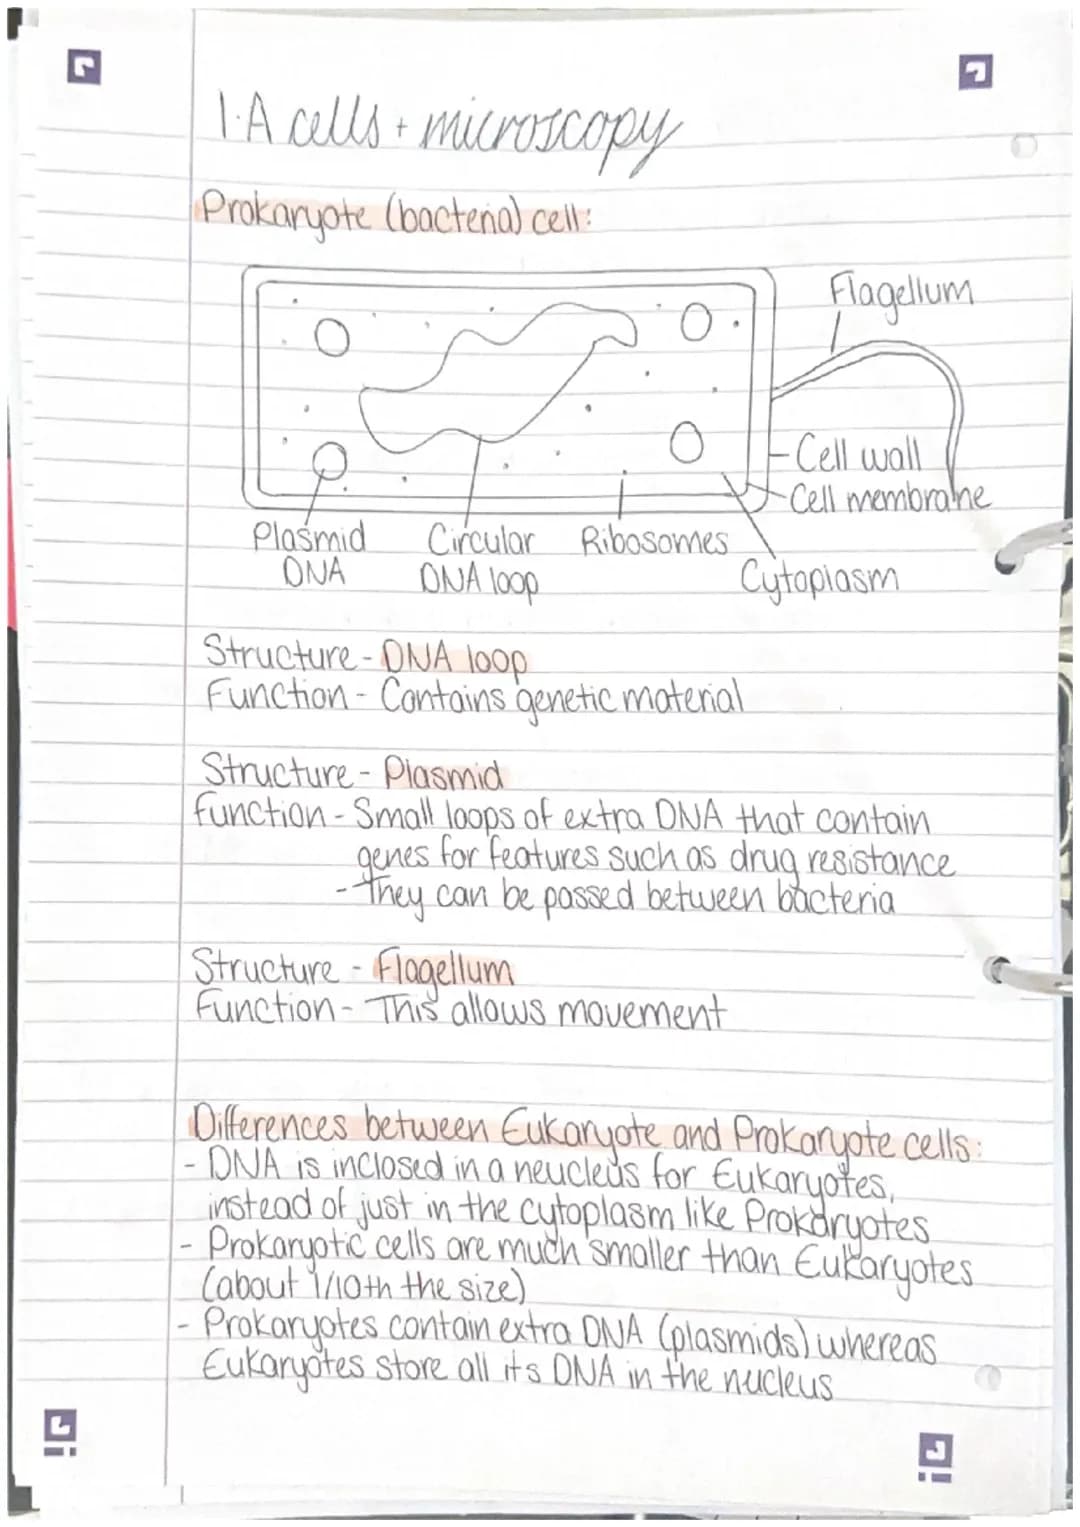 1.A cells + microscopy
Prokaryote (bacteria) cell:
Flagellum
Cell wall
Cell membrane
Plasmid DNA
Circular DNA loop
Ribosomes
Cytoplasm
Structure - DNA loop
Function - Contains genetic material
Structure - Plasmid
Function - Small loops of extra DNA that contain
genes for features such as drug resistance
- They can be passed between bacteria
Structure - Flagellum
Function - This allows movement
Differences between Eukaryote and Prokaryote cells:
- DNA is inclosed in a neucleus for Eukaryotes,
instead of just in the cytoplasm like Prokaryotes
- Prokaryotic cells are much smaller than Eukaryotes
(about 1/10th the size)
- Prokaryotes contain extra DNA (plasmids) whereas
Eukaryotes store all its DNA in the nucleus